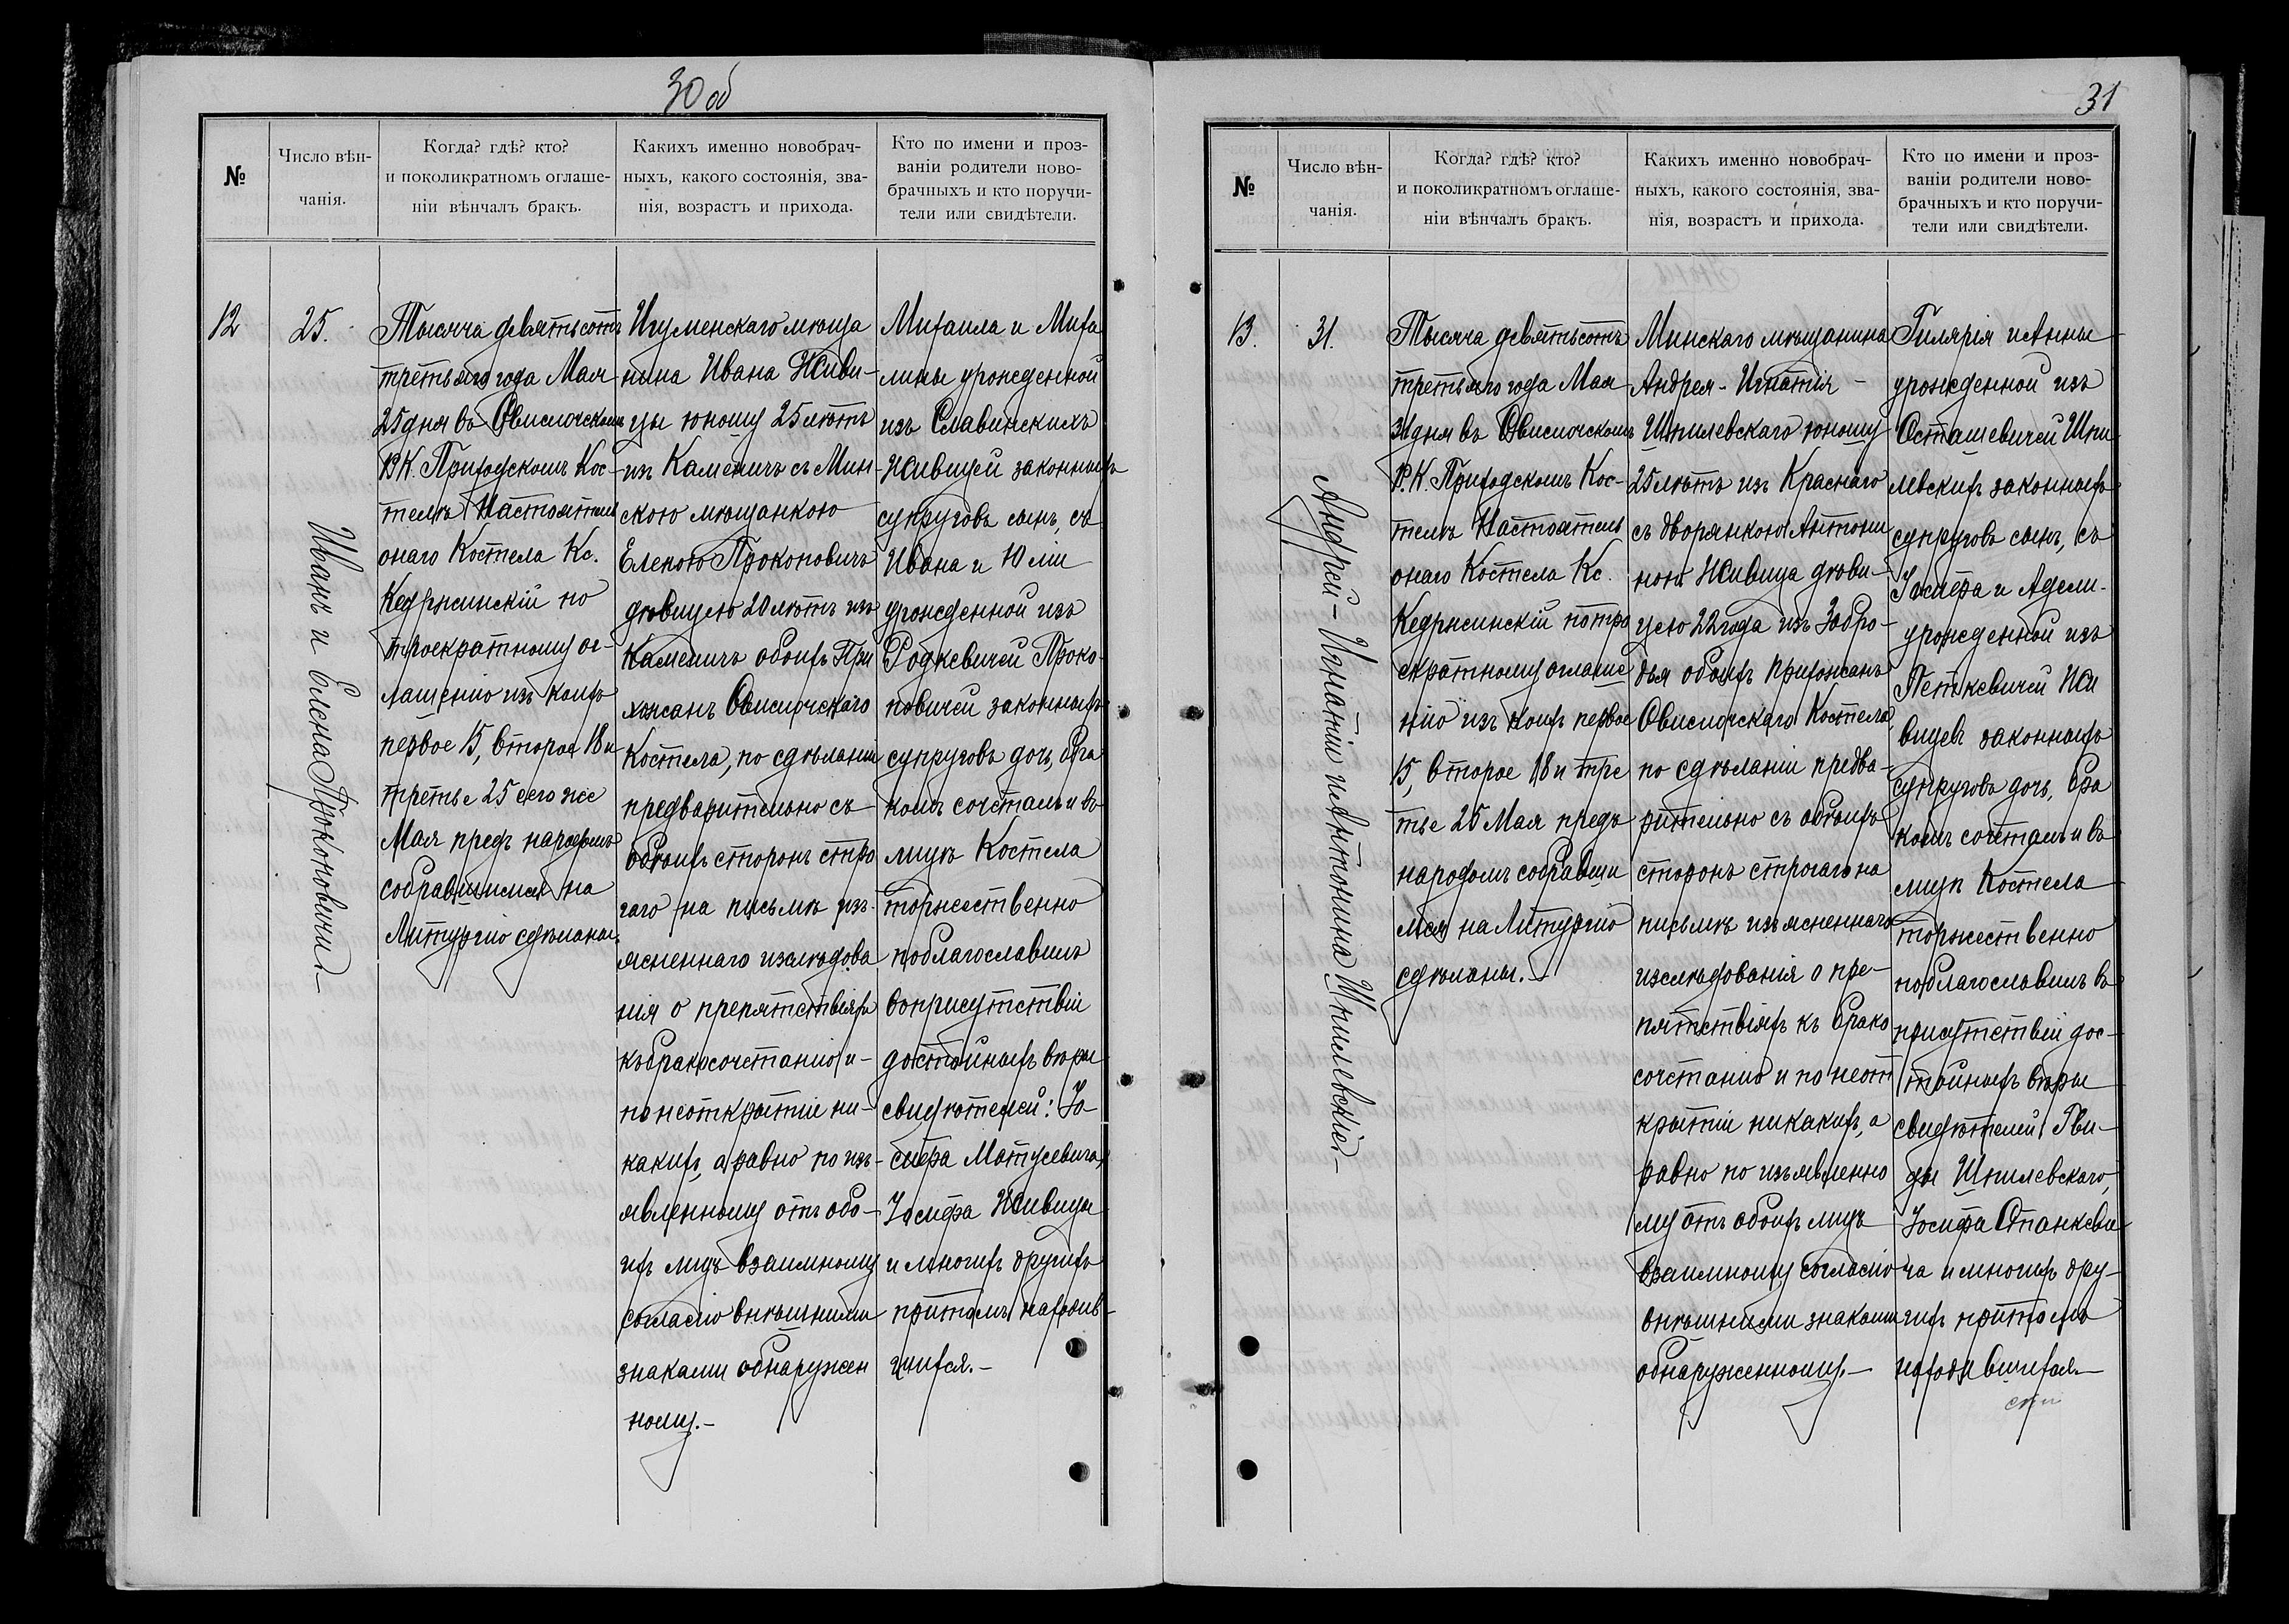 30 об
№
Число вѣн-
чанія.
Когда? гдѣ? кто?
и поколикратномъ оглаше-
ніи вѣнчалъ бракъ.
Какихъ именно новобрач-
ныхъ, какого состоянія, зва-
нія, возрастъ и прихода.
Кто по имени и проз-
ваніи родители ново-
брачныхъ и кто поручи-
тели или свидѣтели.
12
25.
Иванъ и Елена Прокоповичи
Тысяча девятьсотъ
третьяго года Мая
25 дня въ Свислочскомъ
Р.К. Приходскомъ Кос-
телѣ Настоятель
онаго Костела Кс.
Кедржинскій по
троекратному ог-
лашенію изъ коихъ
первое 15, второе 18 и
третье 25 сего же
Мая предъ народомъ
собравшимся на
Литургію сдѣланы.
Игуменскаго мѣща
нина Ивана Живи-
цы юношу 25 лѣтъ
изъ Каменичъ съ Мин-
скою мѣщанкою
Еленою Прокоповичъ
дѣвицею 20 лѣтъ изъ
Каменичъ обоихъ При
хожанъ Свислочскаго
Костела, по сдѣланіи
предварительно съ
обѣихъ сторонъ стро
гаго на письмѣ изъ-
ясненнаго изслѣдова
нія о препятствіяхъ
къ бракосочетанію и-
по неоткрытіи ни-
какихъ, а равно по изъ-
явленному отъ обо-
ихъ лицъ взаимному
согласію внѣшними
знаками обнаружен
ному.-
Михаила и Миха
лины урожденной
изъ Славинскихъ
Живицей законныхъ
супруговъ сынъ, съ
Ивана и Юлии
урожденной изъ
Родкевичей Проко-
повичей законныхъ
супруговъ дочь, бра
комъ сочеталъ и въ
лицѣ Костела
торжественно
поблагославилъ
въ присутствіи
достойныхъ вѣры
свидѣтелей: Іо-
сифа Матусевича,
Іосифа Живицы
и многихъ другихъ
притомъ находив-
шихся.-
31
№
Число вѣн-
чанія.
Когда? гдѣ? кто?
и поколикратномъ оглаше-
ніи вѣнчалъ бракъ.
Какихъ именно новобрач-
ныхъ, какого состоянія, зва-
нія, возрастъ и прихода.
Кто по имени и проз-
ваніи родители ново-
брачныхъ и кто поручи-
тели или свидѣтели.
13.
31.
Андрей-Игнатій и Антонина Шпилевскіе
Тысяча девятьсотъ
третьяго года Мая
31 дня въ Свислочскомъ
Р.К. Приходскомъ Кос-
телѣ Настоятель
онаго Костела Кс.
Кедржинскій по тро
екратному оглаше
нію изъ коихъ первое
15, второе 18 и тре
тье 25 Мая предъ
народомъ собравши
мся на Литургію
сдѣланы.-
Минскаго мѣщанина
Андрея-Игнатія -
Шпилевскаго юношу
25 лѣтъ изъ Краснаго
съ дворянкою Антони
ною Живица дѣви-
цею 22 года изъ Забро-
дья обоихъ прихожанъ
Свислочскаго Костела,
по сдѣланіи предва-
рительно съ обѣихъ
сторонъ строгаго на
письмѣ изъясненнаго
изслѣдованія о пре-
пятствіяхъ къ брако
сочетанію и по неот
крытіи никакихъ, а
равно по изъявленно
му отъ обоихъ лицъ
взаимному согласію
внѣшними знаками
обнаруженному.-
Гилярія и Анны
урожденной изъ
Осташевичей Шпи
левскихъ законныхъ
супруговъ сынъ, съ
Іосифа и Адели-
урожденной изъ
Петкевичей Жи
вицевъ законныхъ
супруговъ дочь, бра
комъ сочеталъ и въ
лицѣ Костела
торжественно
поблагославилъ въ
присутствіи дос-
тойныхъ вѣры
свидѣтелей Гви-
ды Шпилевскаго,
Іосифа Станкеви
ча и многихъ дру-
гихъ притомъ
находившихся.-